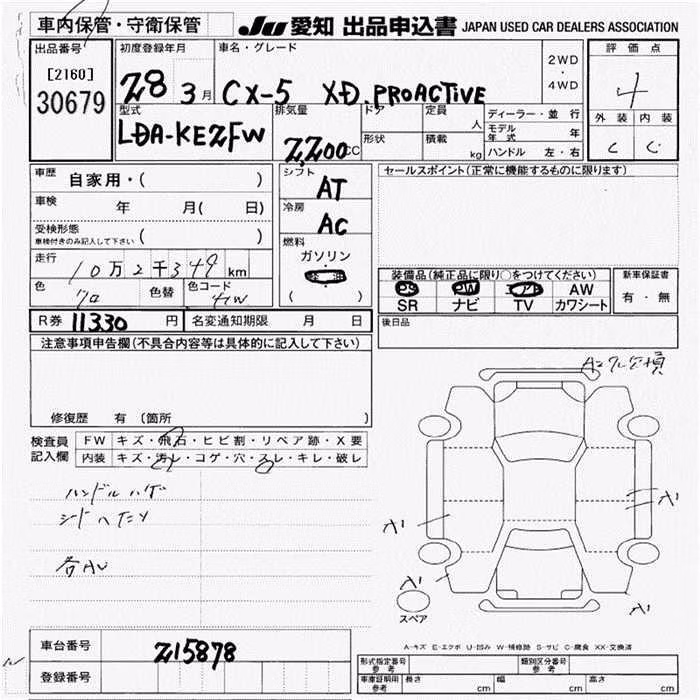 車内保管・守衛保管 JU 愛知 出品申込書 JAPAN USED CAR DEALERS ASSOCIATION
出品番号 初度登録年月 車名・グレード 2WD・4WD 評価点
[2160]
30679 28 3月 CX-5 XD.PROACTIVE 4
型式 排気量 ドア 定員 人 ディーラー・並行 外装 内装
LDA-KE2FW 2,200cc 形状 積載 kg モデル年式 年 C C
ハンドル 左・右
車歴 自家用・( ) シフト AT セールスポイント(正常に機能するものに限ります)
車検 年 月( 日) 冷房 AC
受検形態 ( )
車検付きのみ記入して下さい
燃料
ガソリン
( )
走行 10万2千349km
色 色替 色コード
装備品(純正品に限り○をつけてください) 新車保証書
PS PW エアB AW 有・無
SR ナビ TV カワシート
R券 11330円 名変通知期限 月 日 後日品
注意事項申告欄(不具合内容等は具体的に記入して下さい)
修復歴 有(箇所 )
検査員記入欄 FW キズ・飛石・ヒビ割・リペア跡・X要
内装 キズ・汚レ・コゲ・穴・スレ・キレ・破レ
ハンドルハゲ
シートヘタリ
A1
A1
A1
A1
スペア
A-キズ E-エクボ U-凹み W-補修跡 S-サビ C-腐食 XX-交換済
車台番号 215878
登録番号
形式指定番号 参考 類別区分番号 参考
車庫証明用 参考 長さ cm 幅 cm 高さ cm